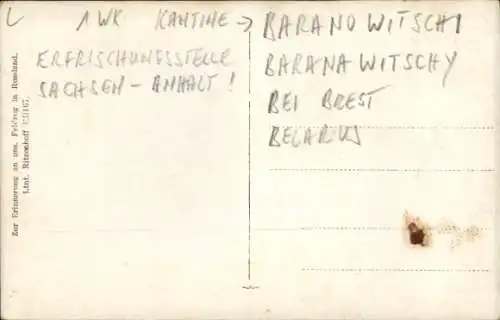 L 1 WK KANTINE → BARANOWITSCHI
ERFRISCHUNGSSTELLE BARANAWITSCHY
SACHSEN - ANHALT ! BEI BREST
BELARUS
Zur Erinnerung an uns. Feldzug in Russland.
Ltnt. Ritzenhoff